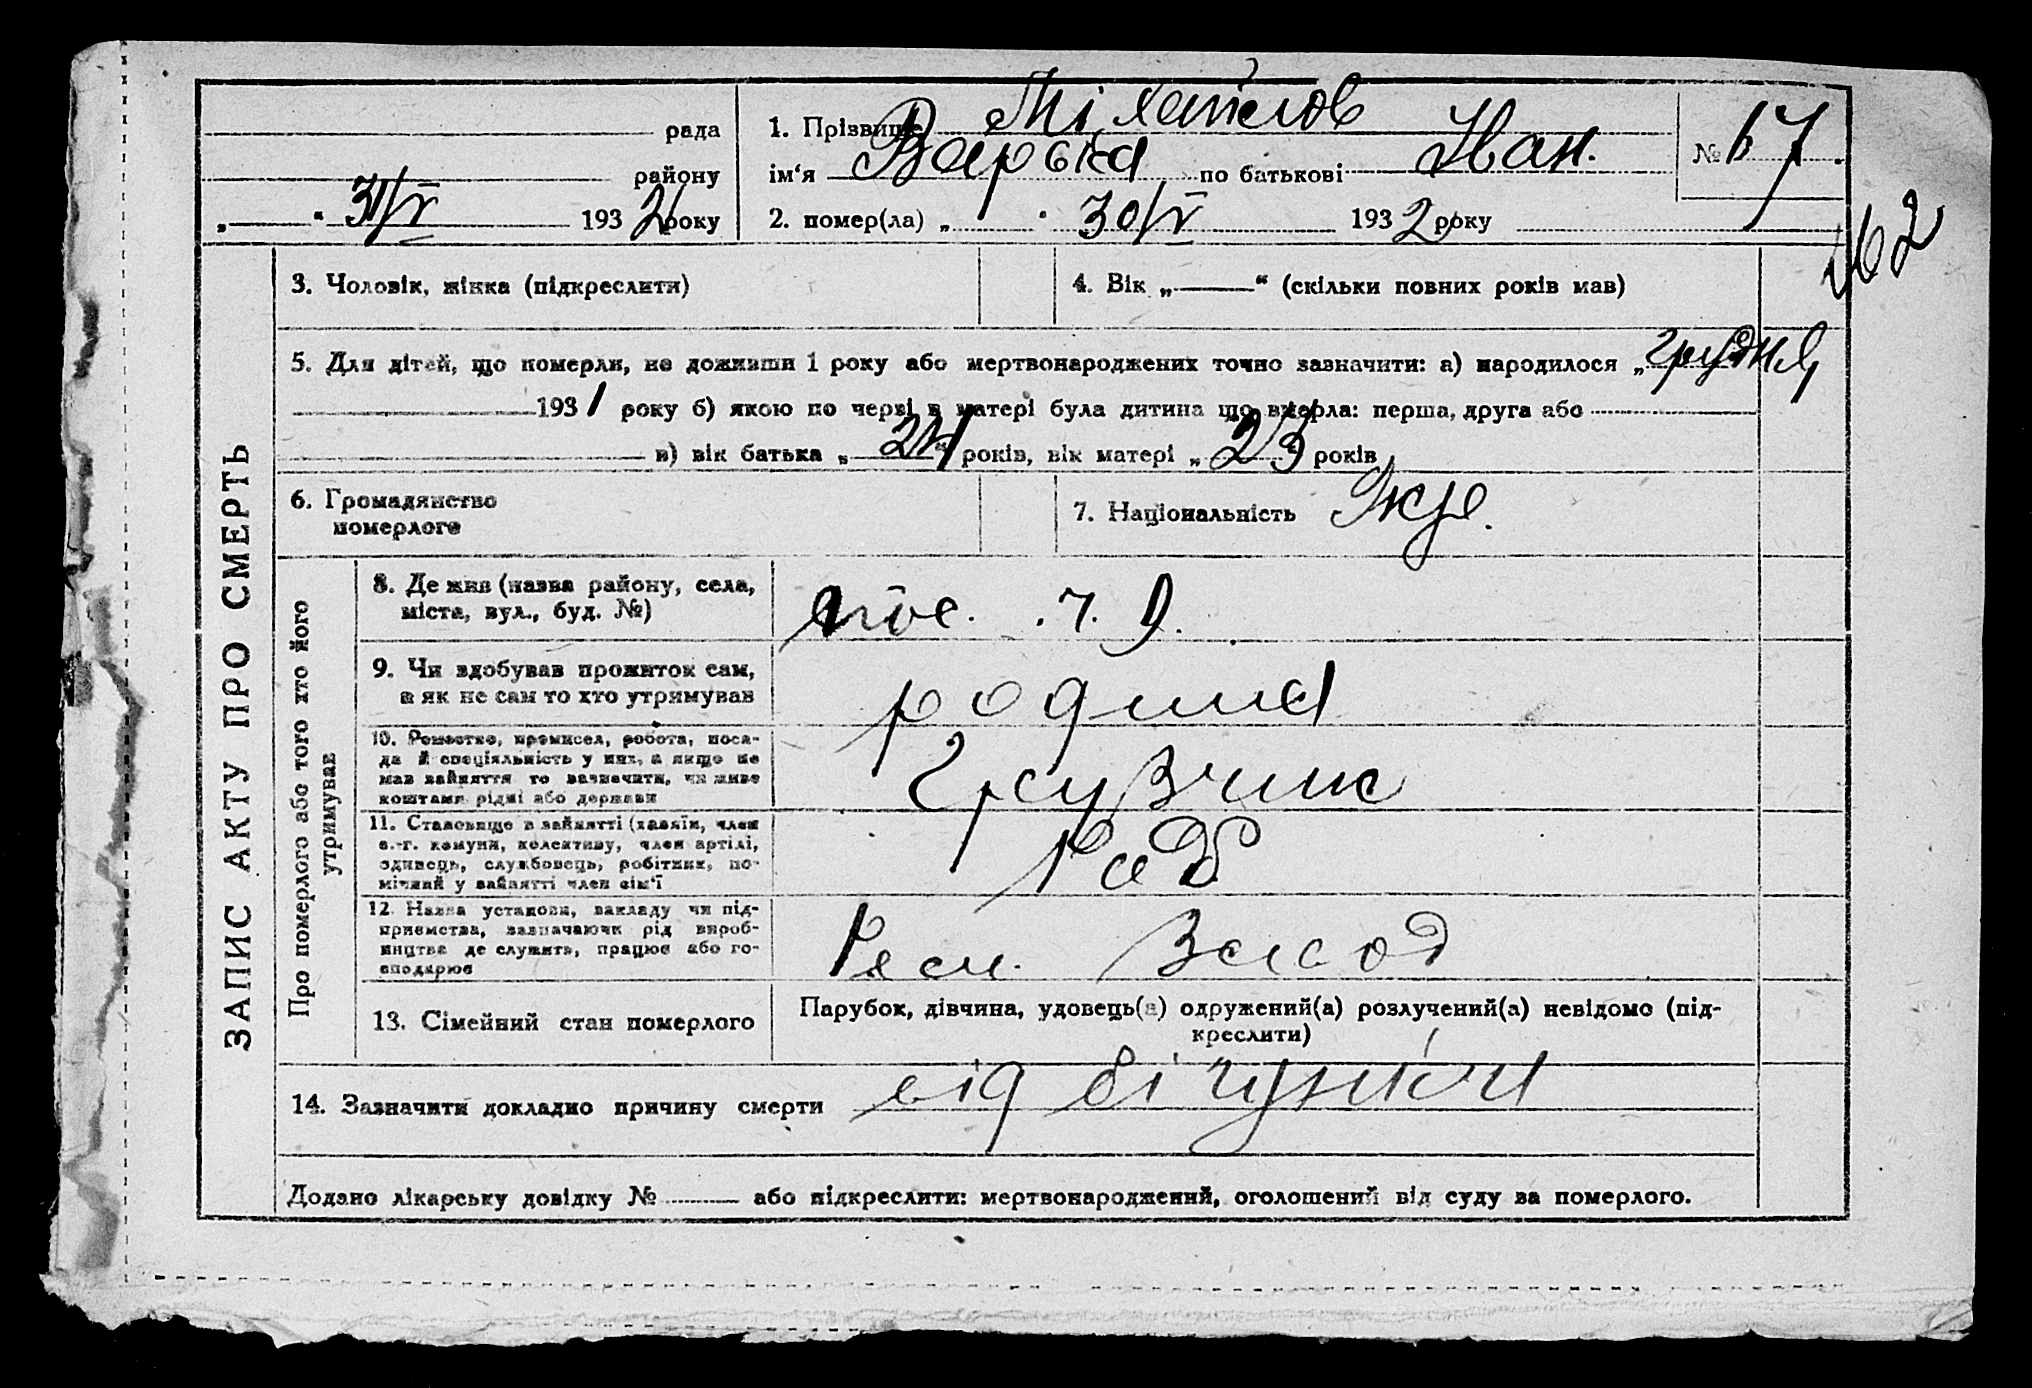 Міхайлов
рада 1. Прізвище
району ім‘я Варька по батькові Іван. № 67.
„ “ 31/V 1932 року 2. помер(ла) „ “ 30/V 1932 року
162
ЗАПИС АКТУ ПРО СМЕРТЬ
3. Чоловік, жінка (підкреслити) 4. Вік „ “ (скільки повних років мав)
5. Для дітей, що померли, не доживши 1 року або мертвонароджених точно зазначити: а) народилося „ грудня
1931 року б) якою по черзі в матері була дитина що вмерла: перша, друга або
в) вік батька „ 24 років, вік матері „ 23 років
6. Громадянство
померлого
7. Національність Укр.
Про померлого або того хто його
утримував
8. Де жив (назва району, села,
міста, вул., буд. №)
9. Чи здобував прожиток сам,
а як не сам то хто утримував
родина
10. Ремество, промисел, робота, поса-
да й спеціяльність у них, а якщо не
мав зайняття то зазначити, чи живе
коштами рідні або держави
Грузчик
11. Становище в зайнятті (хазяїн, член
с.-г. комуни, колективу, член артілі,
одинець, службовець, робітник, по-
мічний у зайнятті член сім‘ї
Роб
12. Назва установи, закладу чи під-
приємства, зазначаючи рід вироб-
ництва де служить, працює або го-
сподарює
завод
13. Сімейний стан померлого
Парубок, дівчина, удовець(а) одружений(а) розлучений(а) невідомо (під-
креслити)
14. Зазначити докладно причину смерти від бігунки
Додано лікарську довідку № або підкреслити: мертвонароджений, оголошений від суду за померлого.